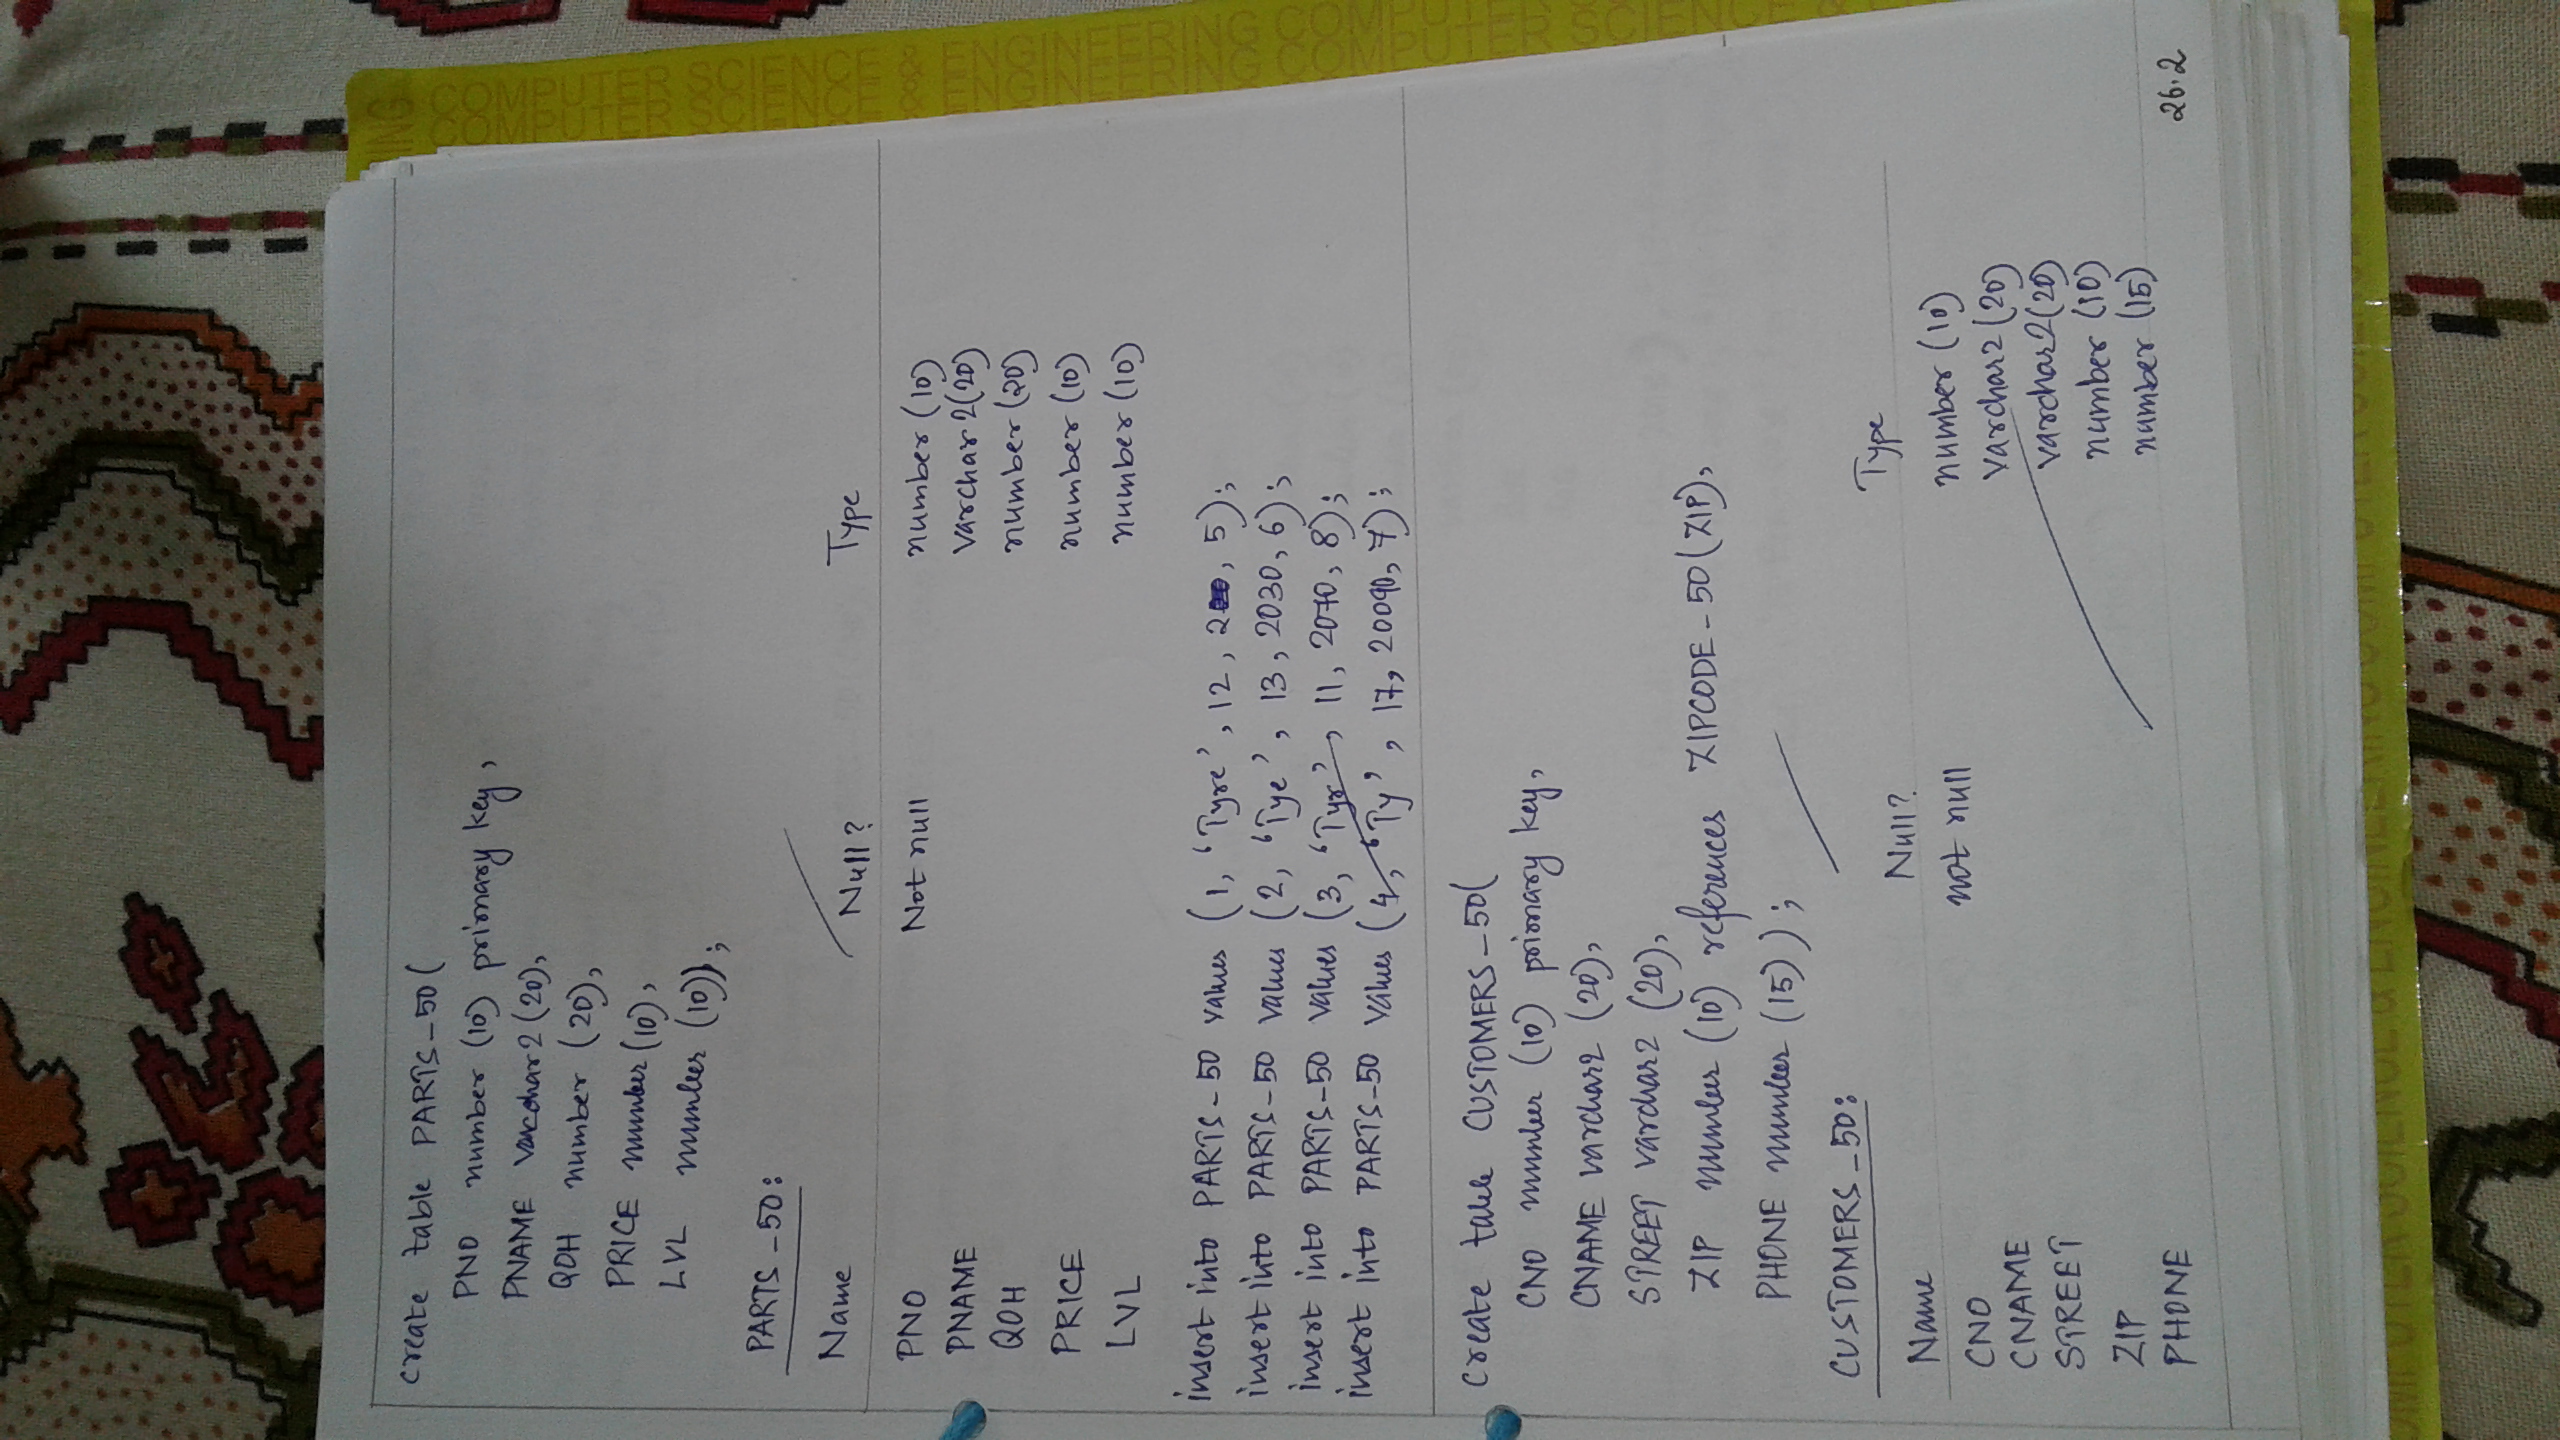 create table PARTS-50(
PNO number (10) primary key,
PNAME varchar2 (20),
QOH number (20),
PRICE number (10),
LVL number (10));
PARTS-50:
Name Null? Type
PNO Not null number (10)
PNAME varchar2(20)
QOH number (20)
PRICE number (10)
LVL number (10)
insert into PARTS-50 values (1, 'Tyre', 12, , 5);
insert into PARTS-50 values (2, 'Tye', 13, 2030, 6);
insert into PARTS-50 values (3, 'Tyr', 11, 2070, 8);
insert into PARTS-50 values (4, 'Ty', 17, 20090, 7);
create table CUSTOMERS-50(
CNO number (10) primary key,
CNAME varchar2 (20),
STREET varchar2 (20),
ZIP number (10) references ZIPCODE-50(ZIP),
PHONE number (15));
CUSTOMERS-50:
Name Null? Type
CNO not null number (10)
CNAME varchar2 (20)
STREET varchar2(20)
ZIP number (10)
PHONE number (15)
26.2
COMPUTER SCIENCE & ENGINEERING COMPUTER SCIENCE